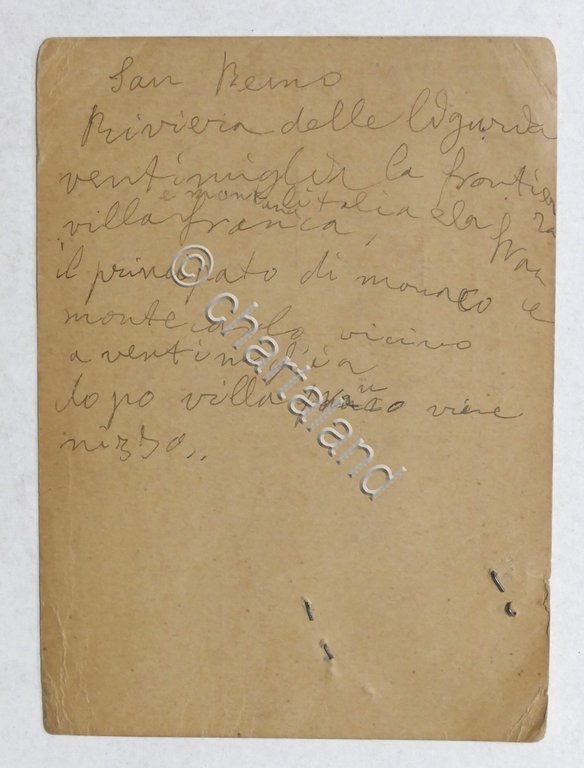 San Remo
Riviera delle liguria
ventimiglia la frontiera
e
l'italia e la fran
villafranca,
il principato di monaco
montecarlo vicino
a ventimiglia
dopo villa viene
nizza,,
© chartaland